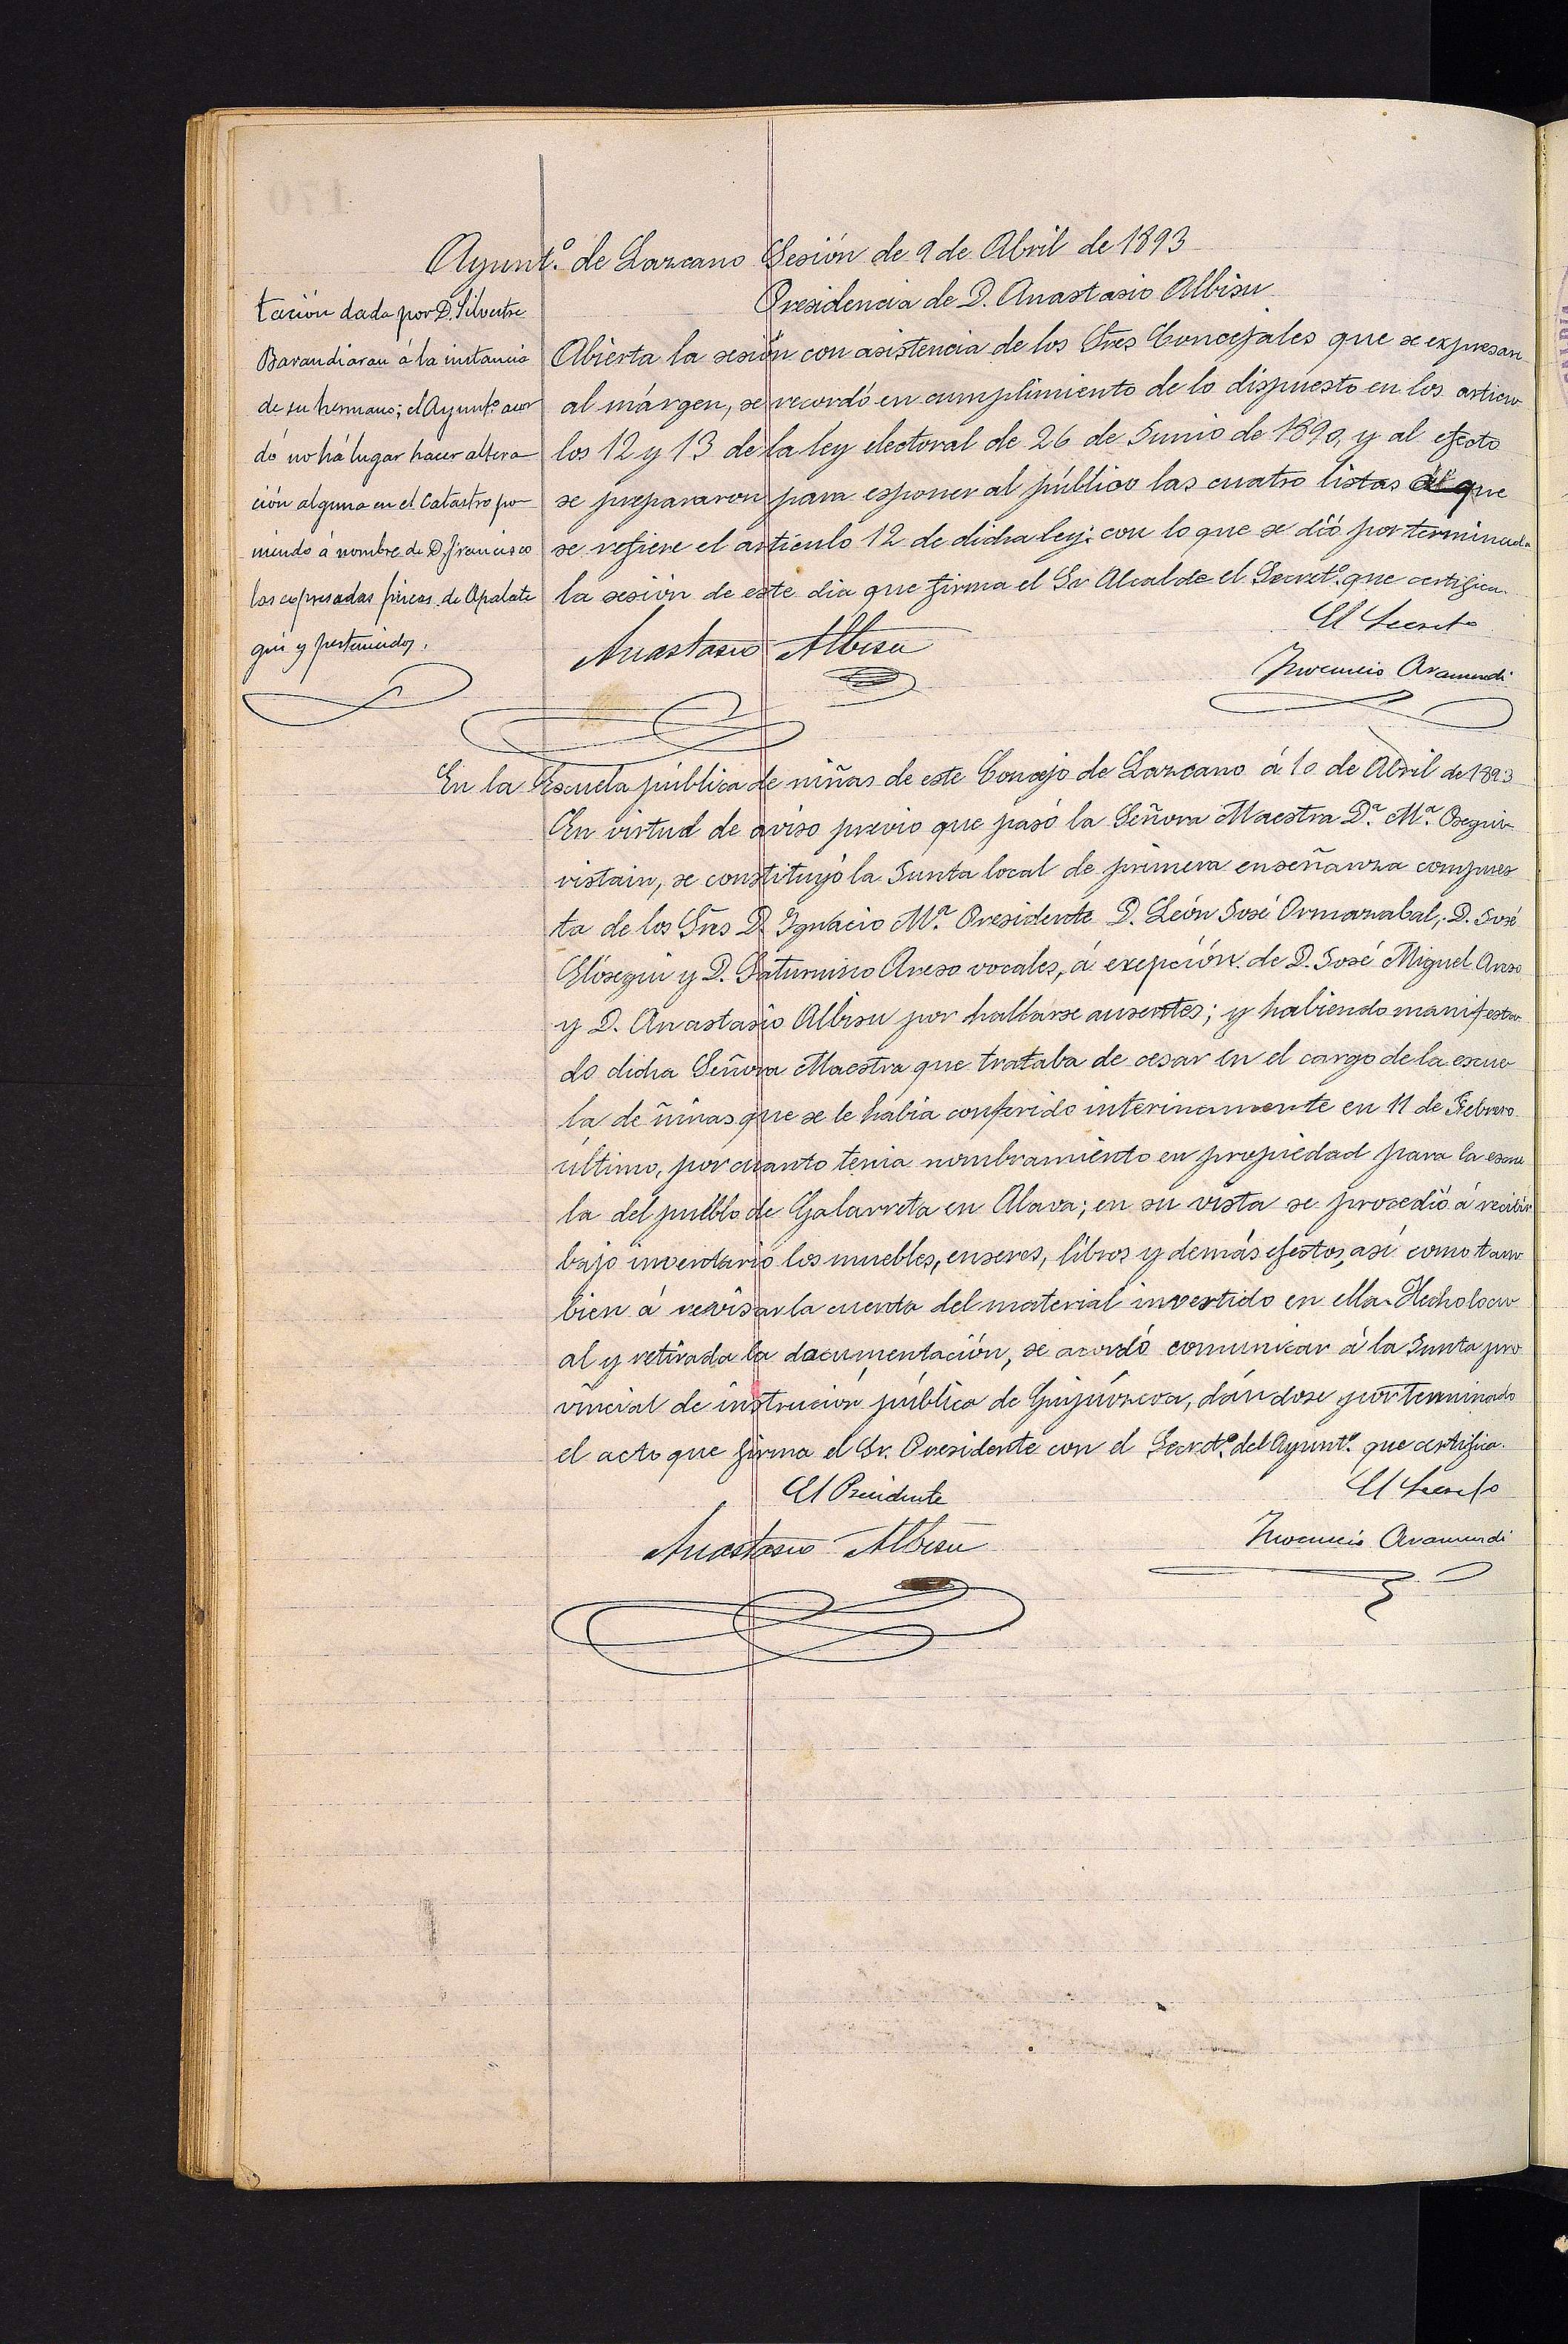 Ayunt.º de Lazcano Sesión de 9 de Abril de 1893
Presidencia de D. Anastasio Albisu
tación dada por D. Silvestre
Barandiaran á la instancia
de su hermano; el Ayunt.º acor
dó no há lugar hacer altera
ción alguna en el Catastro po-
niendo á nombre de D. Francisco
las espresadas fincas de Apalate
gui y pertenecidos.
Abierta la sesión con asistencia de los Sres Concejales que se expresan
al márgen, se recordó en cumplimiento de lo dispuesto en los articu
los 12 y 13 de la ley electoral de 26 de Junio de 1890, y al efecto
se prepararon para esponer al público las cuatro listas que
se refiere el artículo 12 de dicha ley; con lo que se dió por terminada
la sesión de este dia que firma el Sr. Alcalde el Secret.º que certifica.
El Secreto
Anastasio Albisu
Inocencio Aramendi
En la Escuela pública de niñas de este Concejo de Lazcano á 10 de Abril de 1893
En virtud de aviso previo que pasó la Señora Maestra D.ª M.ª Osegui-
ristain, se constituyó la Junta local de primera enseñanza compues
ta de los Sres D. Ignacio M.ª Presidente D. León José Ormazabal, D. José
Elósegui y D. Saturnino Areso vocales, á exepción de D. José Miguel Anso
y D. Anastasio Albisu por hallarse ausentes; y habiendo manifesta
do dicha Señora Maestra que trataba de cesar en el cargo de la escue
la de niñas que se le habia conferido interinamente en 11 de Febrero
último, por cuanto tenia nombramiento en propiedad para la escue
la del pueblo de Galarreta en Alava; en su vista se procedió á recibir
bajo inventario los muebles, enseres, libros y demás efectos, así como tam
bien á revisar la cuenta del material invertido en ella. Hecho lo cu
al y retirada la documentación, se acordó comunicar á la Junta pro
vincial de instrución pública de Guipúzcoa, dándose por terminado
el acto que firma el Sr. Presidente con el Secret.º del Ayunt.º que certifica.
El Presidente
El Secreto
Anastasio Albisu
Inocencio Aramendi